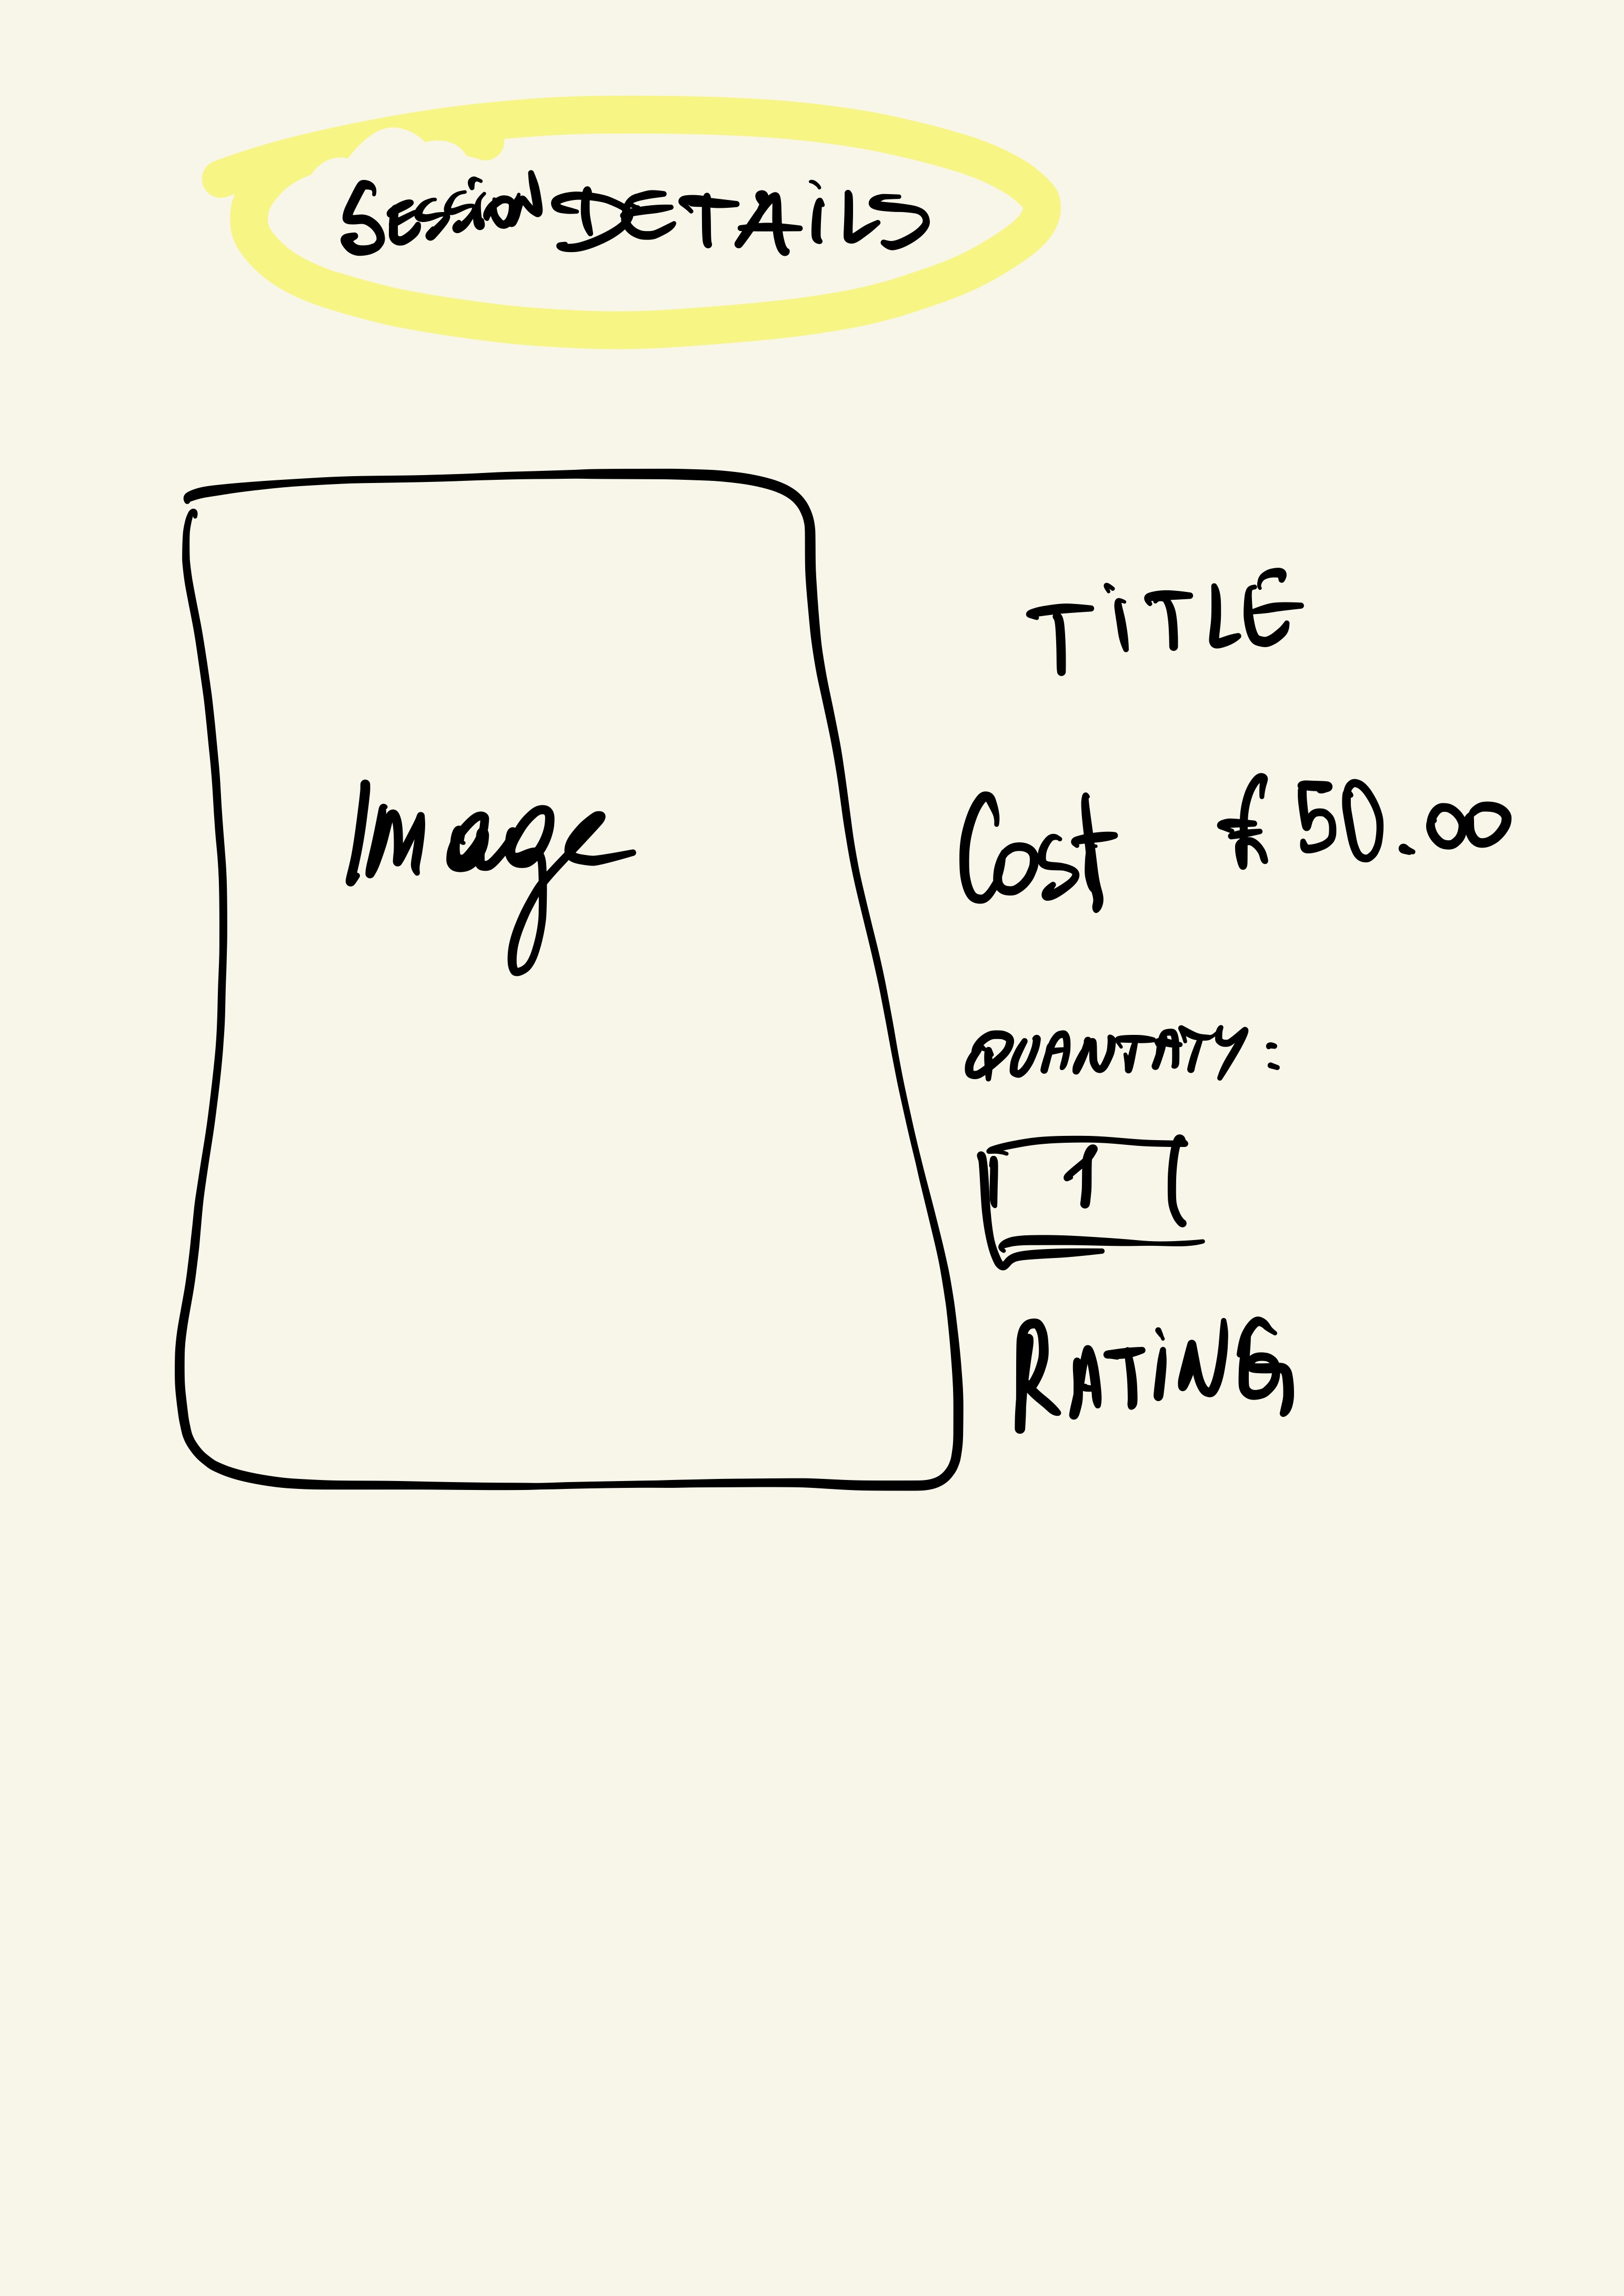 SESSION DETAILS
Image
TITLE
Cost £50.00
QUANTITY:
1
RATING